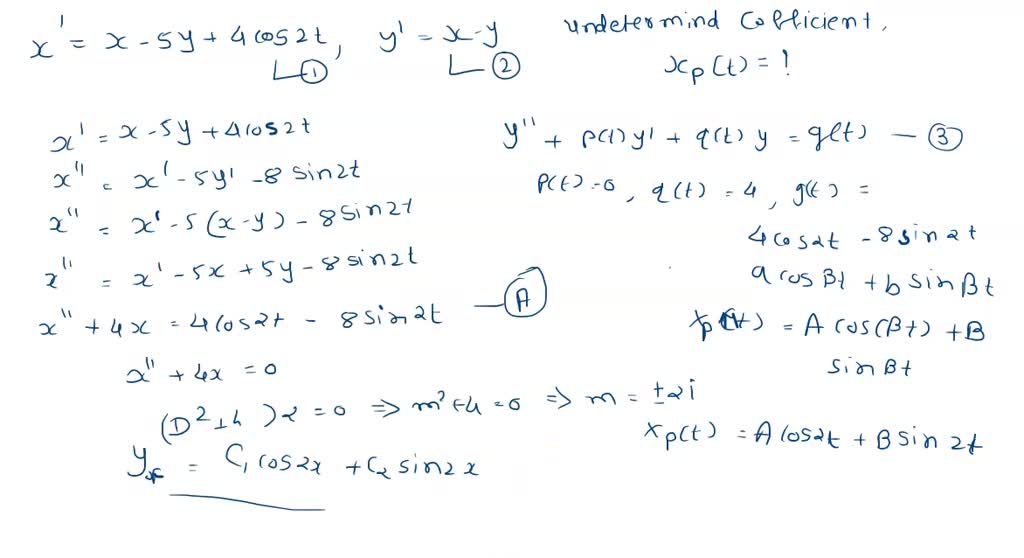 x' = x - 5y + 4 cos2t, y' = x - y
①
②
undetermind Cofficient,
xp(t) = !
x' = x - 5y + 4 cos2t
x'' = x' - 5y' - 8 sin2t
x'' = x' - 5(x-y) - 8 sin2t
x'' = x' - 5x + 5y - 8 sin2t
x'' + 4x = 4 cos2t - 8 sin2t — Ⓐ
x'' + 4x = 0
(D² + 4) x = 0 ⇒ m² + 4 = 0 ⇒ m = ± 2i
= C₁ cos2x + C₂ sin2x
y'' + p(t) y' + q(t) y = g(t) — ③
p(t) = 0, q(t) = 4, g(t) =
4 cos2t - 8 sin2t
a cos βt + b sin βt
= A cos(βt) + B
sin βt
xp(t) = A cos2t + B sin 2t